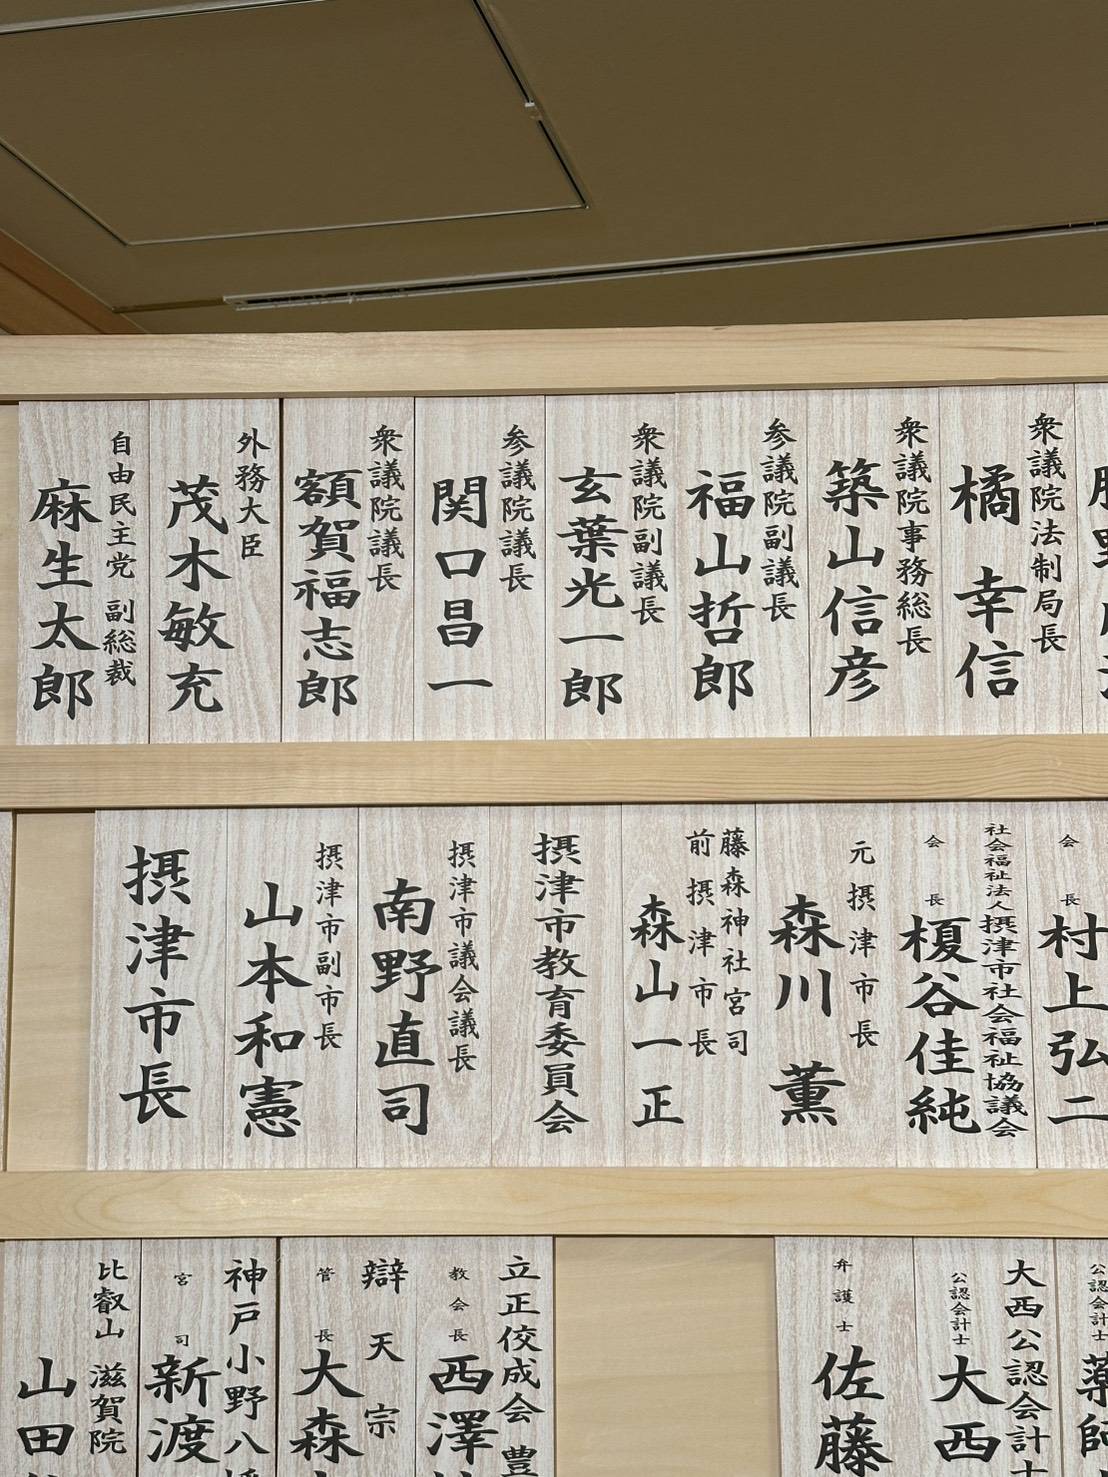 衆議院法制局長
橘 幸信
衆議院事務総長
築山信彦
参議院副議長
福山哲郎
衆議院副議長
玄葉光一郎
参議院議長
関口昌一
衆議院議長
額賀福志郎
外務大臣
茂木敏充
自由民主党 副総裁
麻生太郎
会長
村上弘二
社会福祉法人摂津市社会福祉協議会
会長
榎谷佳純
元摂津市長
森川 薫
藤森神社宮司
前摂津市長
森山一正
摂津市教育委員会
摂津市議会議長
南野直司
摂津市副市長
山本和憲
摂津市長
公認会計士
薬師
大西公認会計士
公認会計士
大西
弁護士
佐藤
立正佼成会 豊
教会長
西澤
辯天宗
管長
大森
神戸小野八
宮司
新渡
比叡山 滋賀院
山田